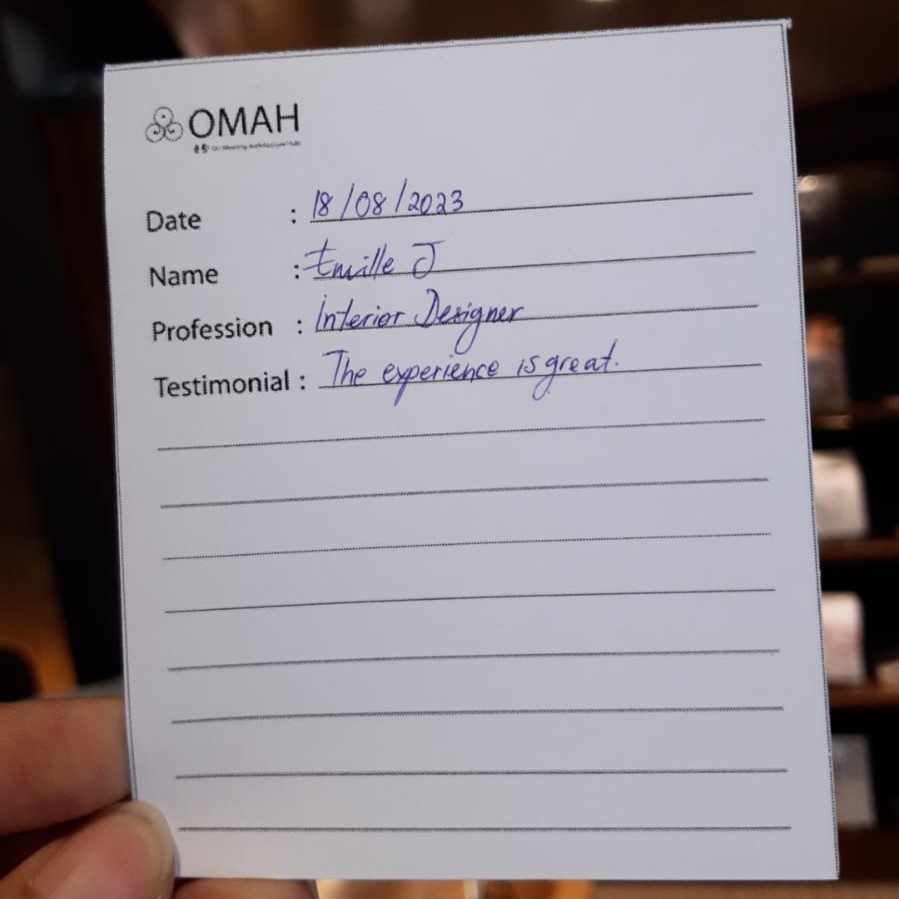 OMAH
Date : 18/08/2023
Name : Emille J
Profession : Interior Designer
Testimonial : The experience is great.